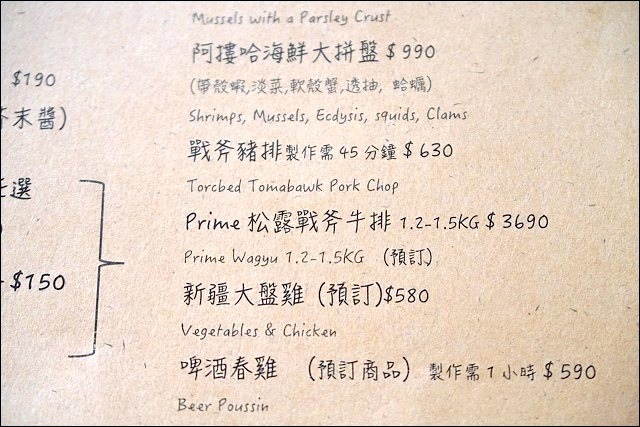 Mussels with a Parsley Crust
阿摟哈海鮮大拼盤 $990
(帶殼蝦,淡菜,軟殼蟹,透抽, 蛤蠣)
Shrimps, Mussels, Ecdysis, squids, Clams
戰斧豬排製作需 45 分鐘 $630
Torcbed Tomabawk Pork Chop
Prime 松露戰斧牛排 1.2-1.5KG $3690
Prime Wagyu 1.2-1.5KG (預訂)
新疆大盤雞 (預訂)$580
Vegetables & Chicken
啤酒春雞 (預訂商品) 製作需 1 小時 $590
Beer Poussin
$190
末醬)
選
$150